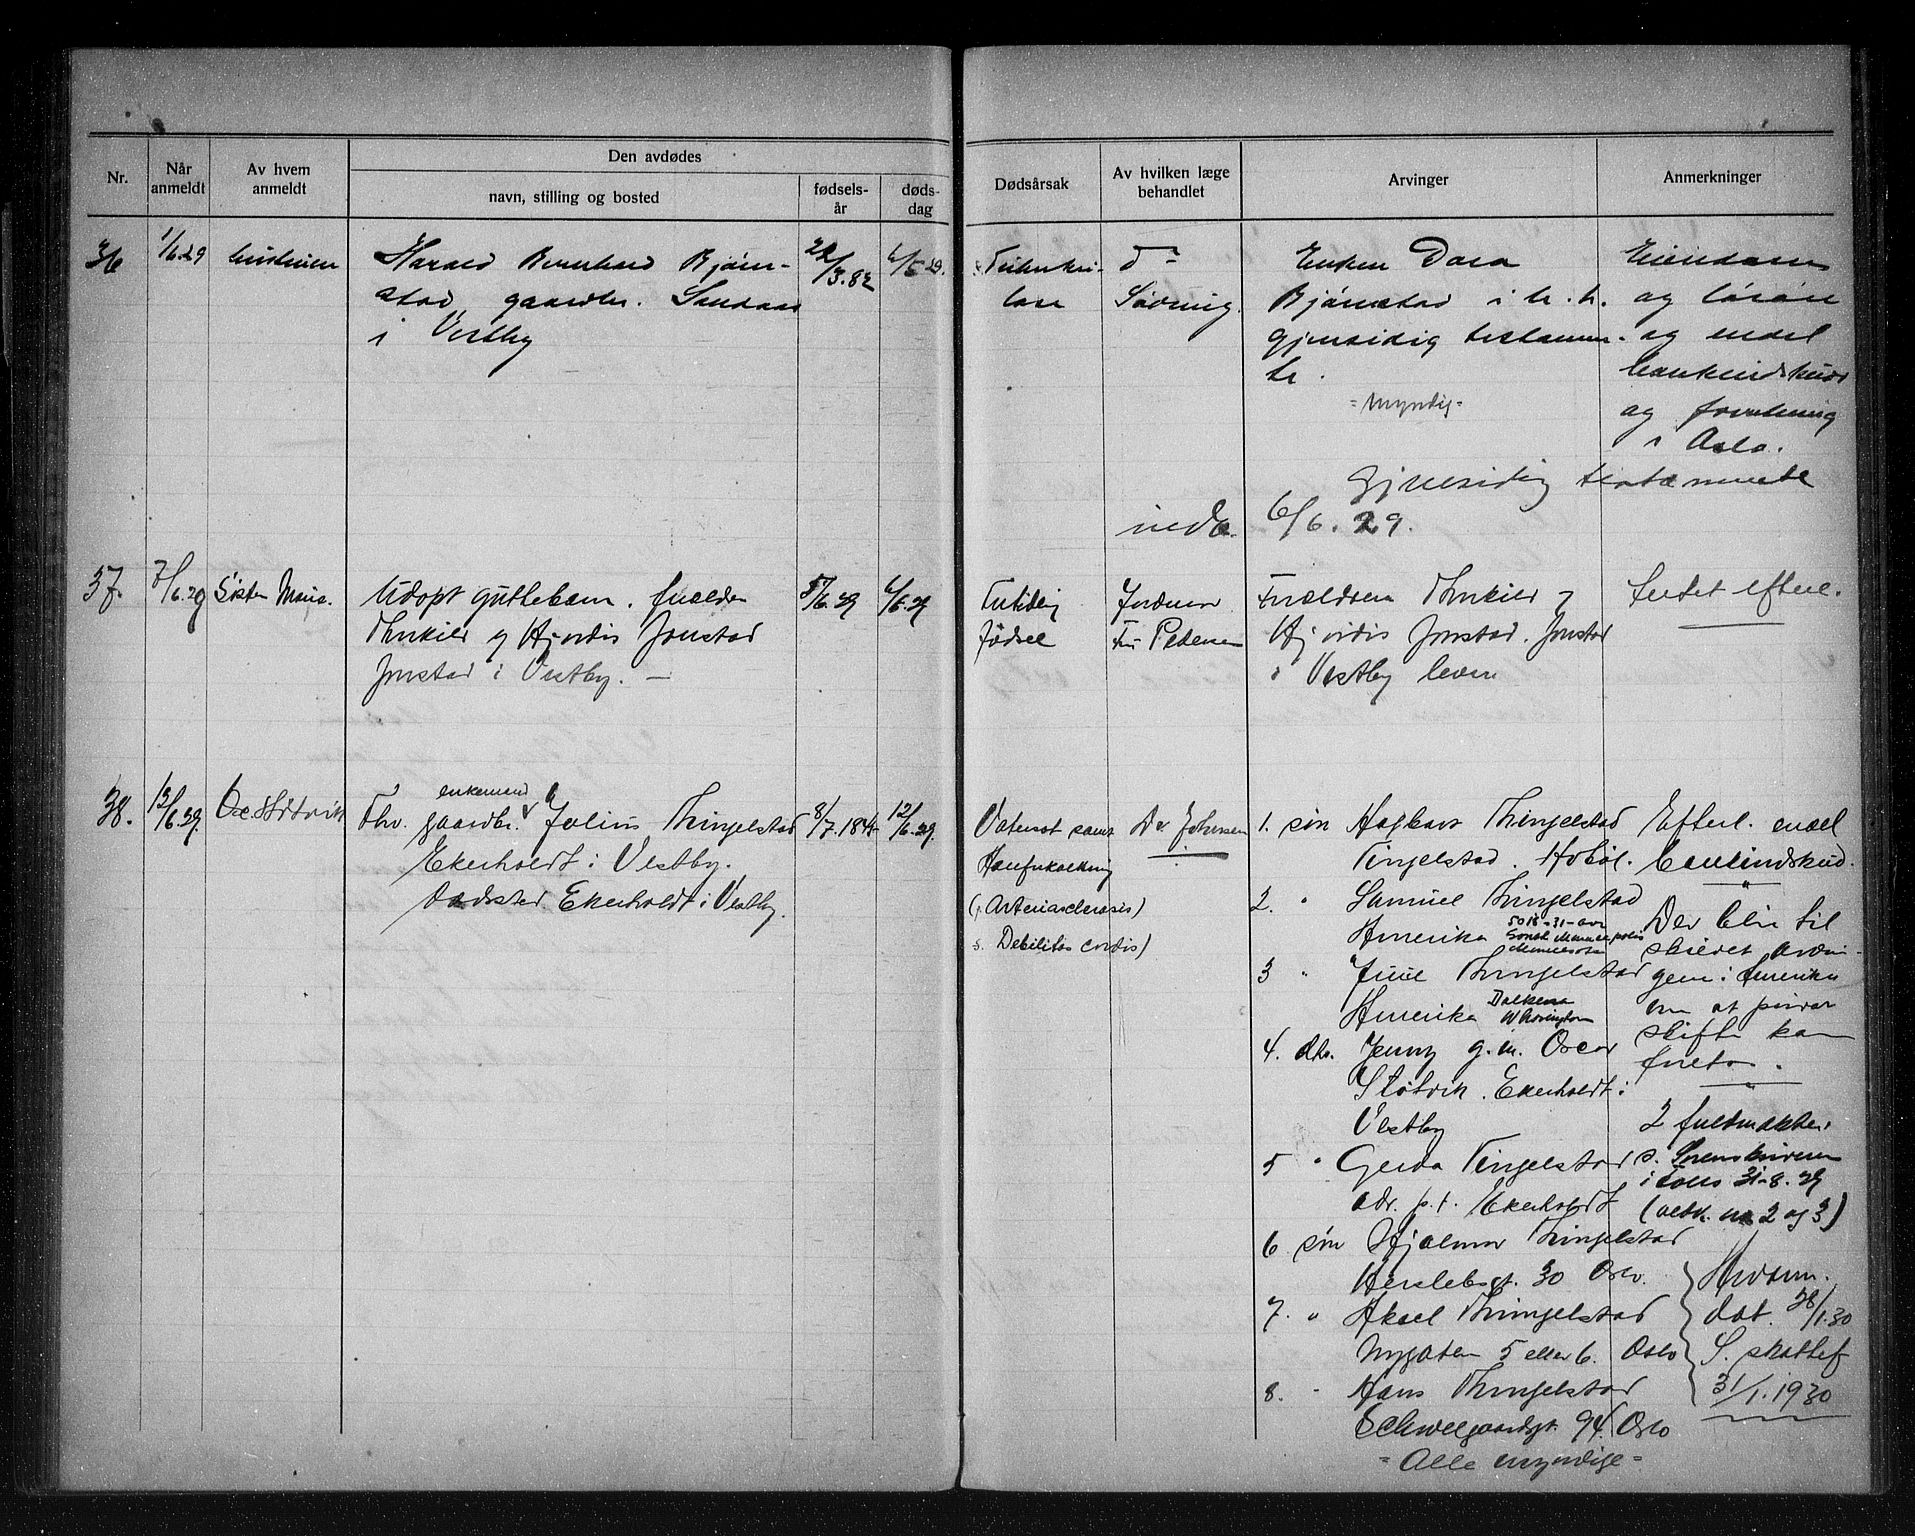 Nr.
Når anmeldt
Av hvem anmeldt
Den avdødes
navn, stilling og bosted
fødsels-år
døds-dag
Dødsårsak
Av hvilken læge behandlet
Arvinger
Anmerkninger
36
1/6.29
Harald Bernhard Bjørn-
stad, gaardbr. Sandaas
i Vestby
22/3.82
1/6.29.
Tuberku-
lose
dr
Sødring.
Enken Dora
Bjørnstad i h. h.
gjensidig testamen-
te.
= myndig =
Eiendom
og løsøre
og endel
bankindskud
og forretning
i Oslo.
Gjensidig testamente
6/6. 29.
37.
7/6.29
Søster Marie.
Udøpt guttebarn. forældre
Thorkild og Hjørdis Jonstad
Jonstad i Vestby. —
5/6.29
6/6.29
For tidlig
fødsel
Jordmor
Fru Pedersen
Forældrene Thorkild og
Hjørdis Jonstad. Jonstad
i Vestby lever
Intet efterl.
38.
13/6.29.
Osc. Støtvik
Fhv. gaardbr. enkemand Julius Thingelstad
Ekerholdt i Vestby.
Dødssted Ekerholdt i Vestby.
8/7.1845
12/6.29.
Vatersot samt
Hanforkalkning
(: Arteriosclerosis)
s. Debilitas cordis)
Dr Johnsen
1. søn Hagbart Thingelstad
Tingelstad. Hobøl.
2. " Samuel Thingelstad
Amerika 5018-31-ave
South Minneapolis
Minnesota
3 " Juul Thingelstad
Amerika Dalkena
Washington
4. dtr. Jenny g.m. Oscar
Støtvik. Ekerholdt i
Vestby
5 " Gerda Tingelstad
adr. p.t. Ekerholdt
6 søn Hjalmar Thingelstad
Herslebsgt. 30 Oslo.
7. " Aksel Thingelstad
Nygaten 5 eller 6. Oslo
8. " Hans Thingelstad
Schweigaardsgt. 94. Oslo
= Alle myndige =
Efterl. endel
bankindskud.
Der blir til
skiftet
i Amerika
om at privat
skifte kan
foretas.
2 fuldmakter
s. Sorenskriveren
i Follo 31-8.29
nr 2 og 3)
dat. 28/1.30
S. skattef
31/1.1930